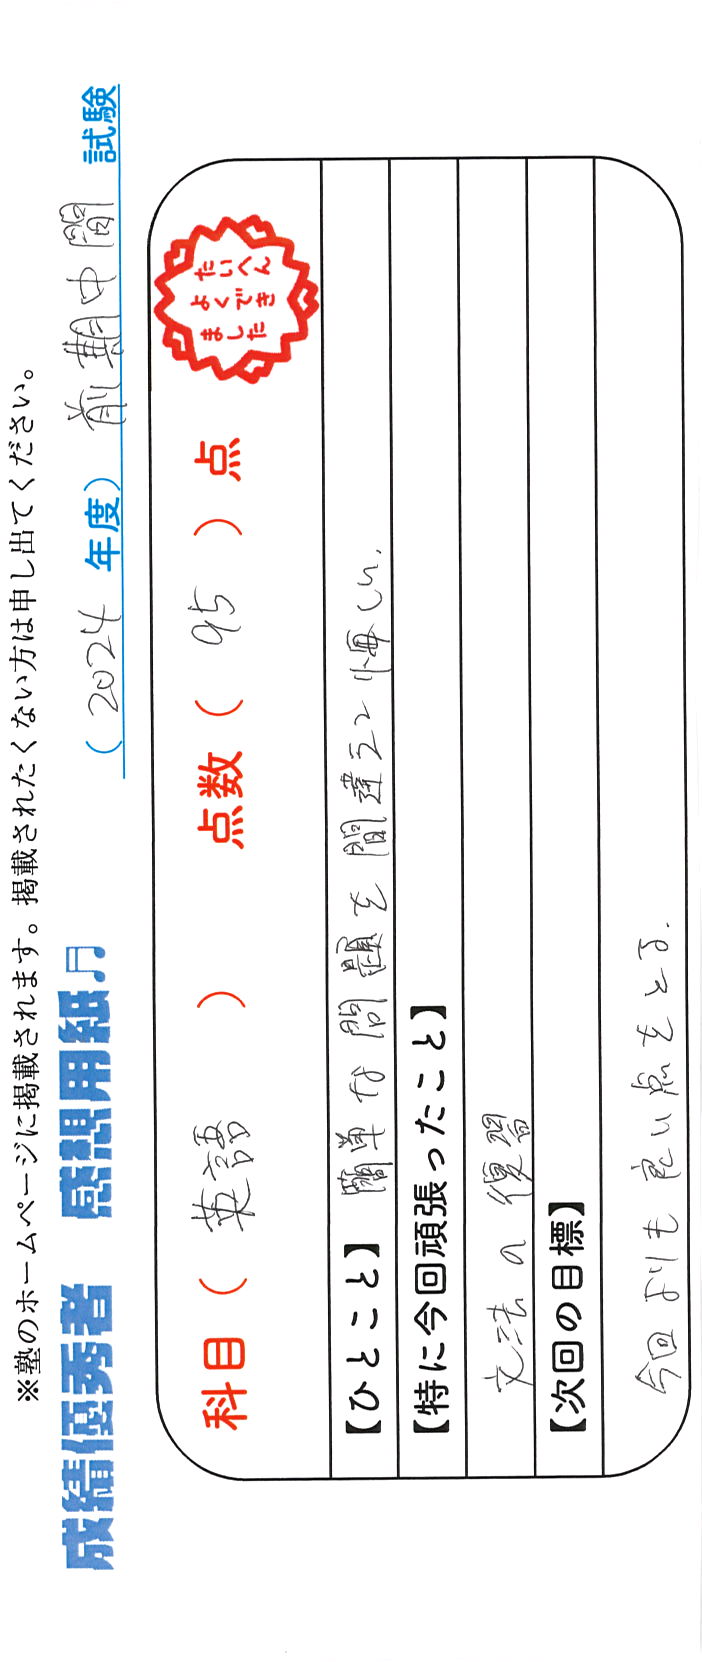 ※塾のホームページに掲載されます。掲載されたくない方は申し出てください。
成績優秀者 感想用紙♫ (2024 年度) 前期中間 試験
科目 ( 英語 ) 点数 ( 95 ) 点
たいへん
よくでき
ました
【ひとこと】 簡単な問題を間違えて悔しい.
【特に今回頑張ったこと】
文法の復習
【次回の目標】
今回よりも良い点をとる.